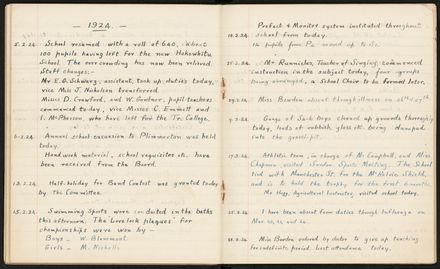 — 1924. —
5.2.24. School resumed with a roll of 640, about
100 pupils having left for the new Hokowhitu
School. The overcrowding has now been relieved.
Staff changes:-
Mr E. G. Schwarz, assistant, took up duties today,
vice Miss J. Nicholson transferred.
Misses D. Crawford, and W. Gardner, pupil teachers
commenced today, vice Misses C. Emmett and
I. McPherson, who have left for the Tr. College.
6.2.24. Annual school excursion to Plimmerton was held
today.
Handwork material, school requisites etc. have
been received from the Board.
13.2.24. Half-holiday for Band Contest was granted today
by the Committee.
15.2.24. Swimming Sports were conducted in the baths
this afternoon. The Lovelock plaques for
championships were won by -
Boys - W. Blackmore.
Girls - M. Nicholls
Prefect & Monitor system instituted throughout
18.2.24. school from today.
12 pupils from Pa moved up to S1.
Mr Runnicles, Teacher of Singing, commenced
instruction in the subject today, four groups
being arranged, a School Choir to be formed later.
Miss Bowden absent through illness on
Gangs of Sack boys cleaned up grounds thoroughly
today, loads of rubbish, glass etc. being dumped
into the gravel-pit.
Athletic team, in charge of Mr Campbell, and Miss
Chapman, visited Sports Meeting. The School
tied with Manchester St. for the Shield,
and is to hold the trophy for the first 6 months.
Mr Hogg, Agricultural Instructor, visited school today.
I have been absent from duties through Influenza on
Mar.
Miss Bowden ordered by doctor to give up teaching
for indefinite period. Last attendance today.